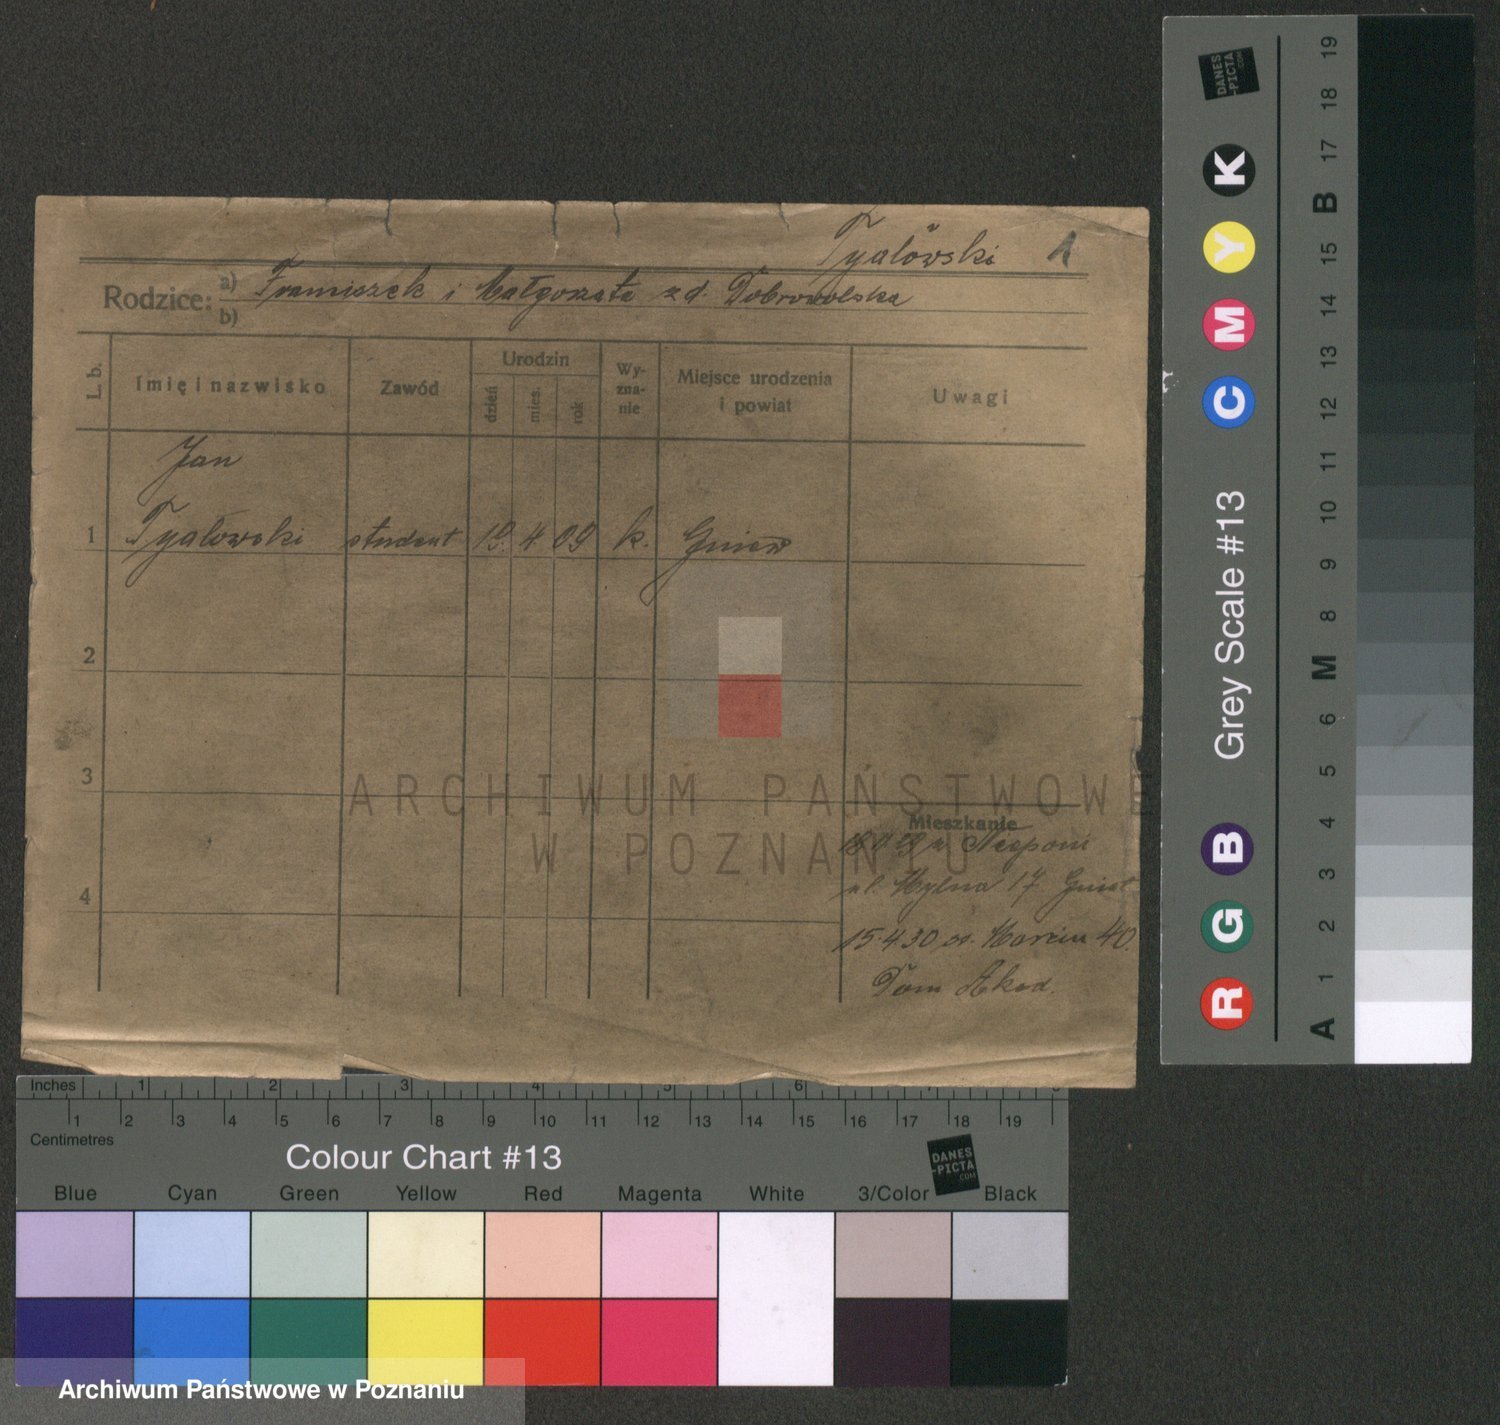 Tyałowski 1
Rodzice: a) Franciszek i Małgorzata zd. Dobrowolska
b)
L. b. Imię i nazwisko Zawód Urodzin dzień mies. rok Wyznanie Miejsce urodzenia i powiat Uwagi
Jan
1 Tyałowski student 19. 4. 09 k. Gniew
2
3
4
Mieszkanie
ul. Młyna 17 
15.4.30 św. Marcin 40.
Dom Akad.
ARCHIWUM PAŃSTWOWE
W POZNANIU
Inches 1 2 3 4 5 6 7
1 2 3 4 5 6 7 8 9 10 11 12 13 14 15 16 17 18 19
Centimetres
Colour Chart #13
DANES-PICTA.COM
Blue Cyan Green Yellow Red Magenta White 3/Color Black
Archiwum Państwowe w Poznaniu
DANES-PICTA.COM
R G B Grey Scale #13 C M Y K
A 1 2 3 4 5 6 M 8 9 10 11 12 13 14 15 B 17 18 19